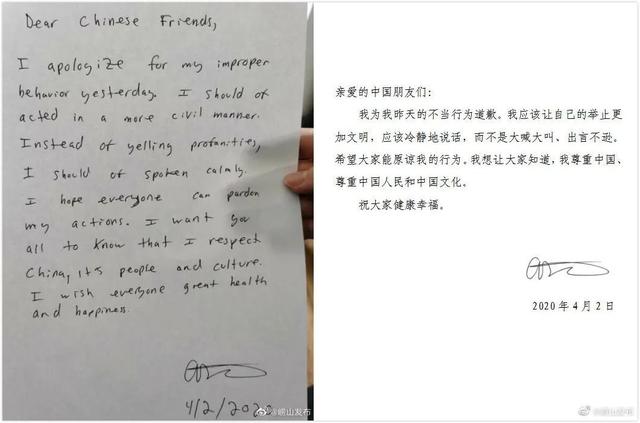 Dear Chinese Friends,
I apologize for my improper
behavior yesterday. I should of
acted in a more civil manner.
Instead of yelling profanities,
I should of spoken calmly.
I hope everyone can pardon
my actions. I want you
all to know that I respect
China, its people and culture.
I wish everyone great health
and happiness.
4/2/2020
@崂山发布
亲爱的中国朋友们：
我为我昨天的不当行为道歉。我应该让自己的举止更
加文明，应该冷静地说话，而不是大喊大叫、出言不逊。
希望大家能原谅我的行为。我想让大家知道，我尊重中国、
尊重中国人民和中国文化。
祝大家健康幸福。
2020年4月2日
@崂山发布